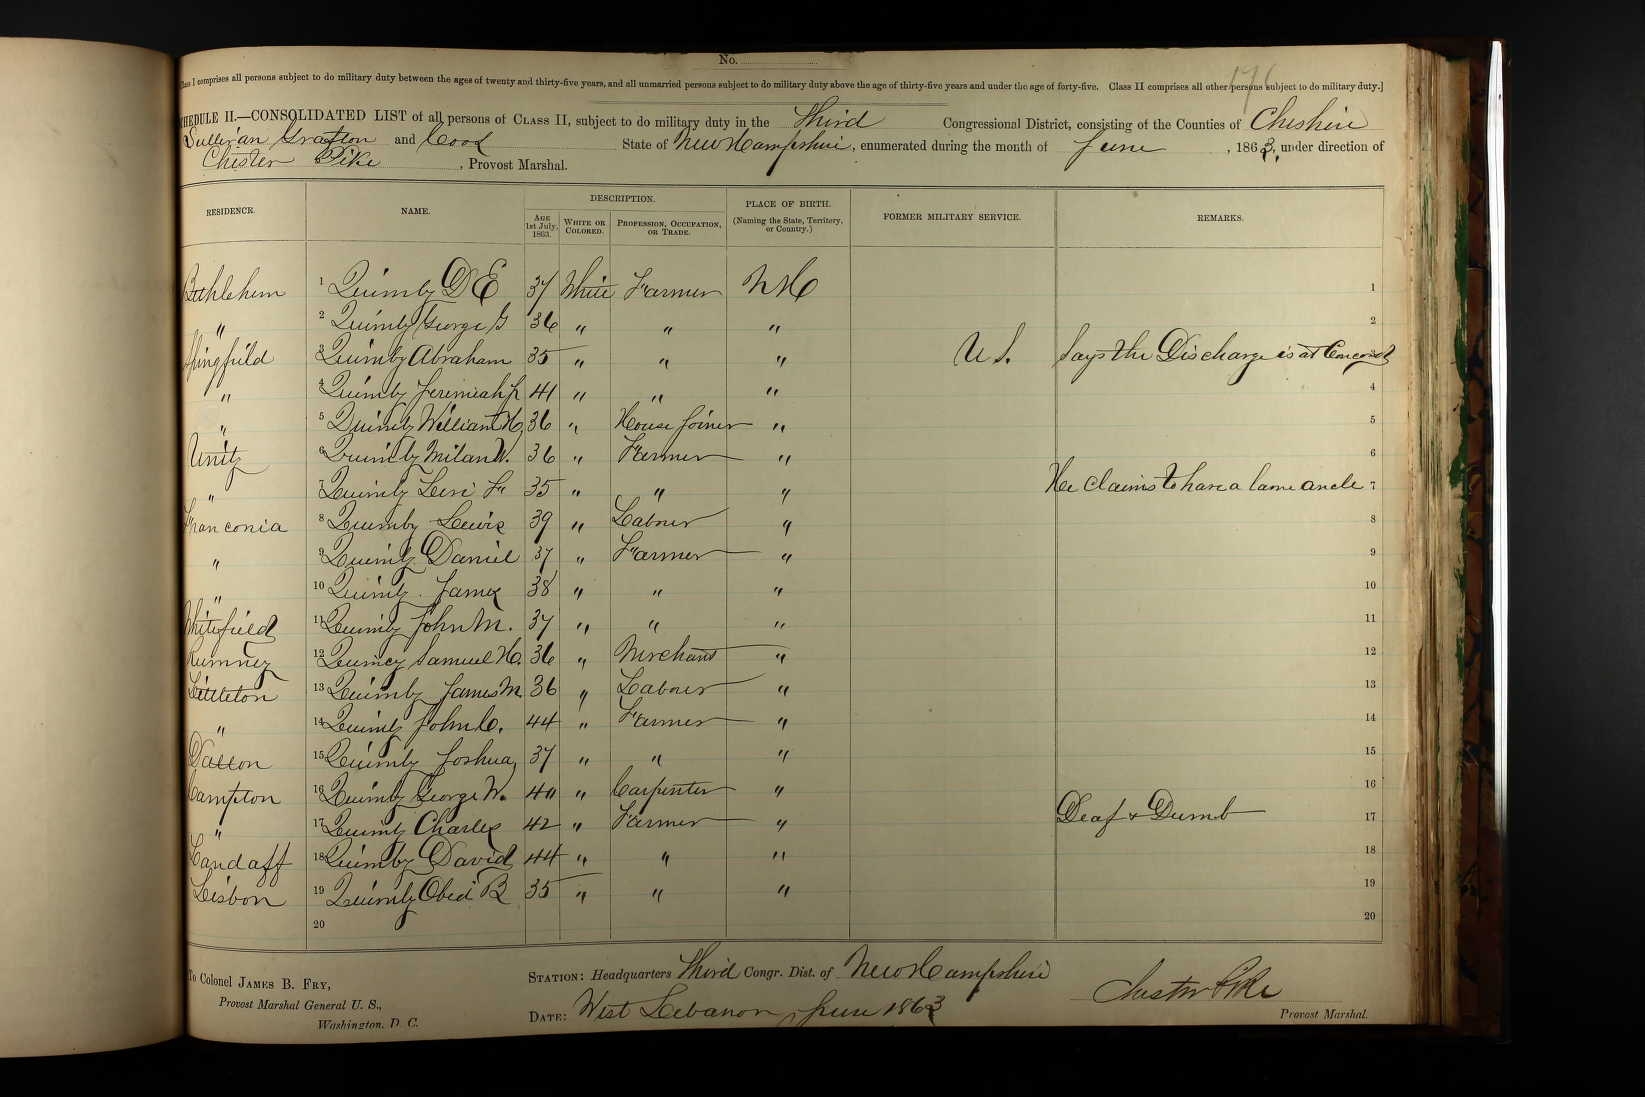 No.
176
Class I comprises all persons subject to do military duty between the ages of twenty and thirty-five years, and all unmarried persons subject to do military duty above the age of thirty-five years and under the age of forty-five. Class II comprises all other persons subject to do military duty.]
HEDULE II.—CONSOLIDATED LIST of all persons of CLASS II, subject to do military duty in the Third Congressional District, consisting of the Counties of Cheshire
Sullivan Grafton and Coos State of New Hampshire, enumerated during the month of June, 1863, under direction of
Chester Pike, Provost Marshal.
RESIDENCE. NAME. DESCRIPTION. PLACE OF BIRTH. (Naming the State, Territory, or Country.) FORMER MILITARY SERVICE. REMARKS.
AGE 1st July, 1863. WHITE OR COLORED. PROFESSION, OCCUPATION, OR TRADE.
Bethlehem 1 Quimby D E 37 White Farmer N H 1
" 2 Quimby George G 36 " " " 2
Springfield 3 Quimby Abraham 35 " " " U S. Says the Discharge is at Concord 3
" 4 Quimby Jeremiah P 41 " " " 4
" 5 Quimby William H. 36 " House Joiner " 5
Unity 6 Quimby Milan W. 36 " Farmer " 6
" 7 Quimby Levi F 35 " " " He claims to have a lame ancle 7
Franconia 8 Quimby Lewis 39 " Laborer " 8
" 9 Quimby Daniel 37 " Farmer " 9
" 10 Quimby James 38 " " " 10
Whitefield 11 Quimby John M. 37 " " " 11
Rumney 12 Quincy Samuel H. 36 " Merchant " 12
Littleton 13 Quimby James M 36 " Laborer " 13
" 14 Quimby John C. 44 " Farmer " 14
Dalton 15 Quimby Joshua 37 " " " 15
Campton 16 Quimby George W. 40 " Carpenter " 16
" 17 Quimby Charles 42 " Farmer " Deaf & Dumb 17
Landaff 18 Quimby David 44 " " " 18
Lisbon 19 Quimby Obed B 35 " " " 19
20 20
To Colonel JAMES B. FRY,
Provost Marshal General U. S.,
Washington, D. C.
STATION: Headquarters Third Congr. Dist. of New Hampshire
DATE: West Lebanon June 1863
Chester Pike
Provost Marshal.